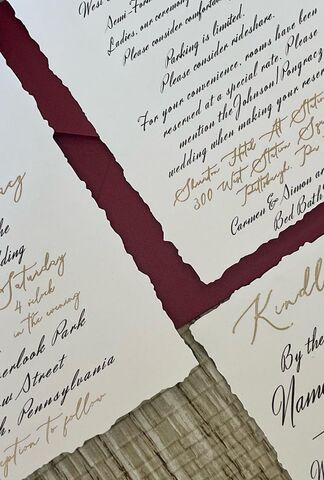 West
Semi-Form
Ladies, our ceremony
Please consider comfortab
Parking is limited.
Please consider rideshare.
For your convenience, rooms have been
reserved at a special rate. Please
mention the Johnson/Pongracz
wedding when making your reser
Sheraton Hotel At Statio
300 West Station Squ
Pittsburgh, Pa
Carmen & Simon ar
Bed Bath
he
dding
Saturday
4 o'clock
in the evening
erlook Park
w Street
h, Pennsylvania
eption to follow
Kindl
By the
Nam